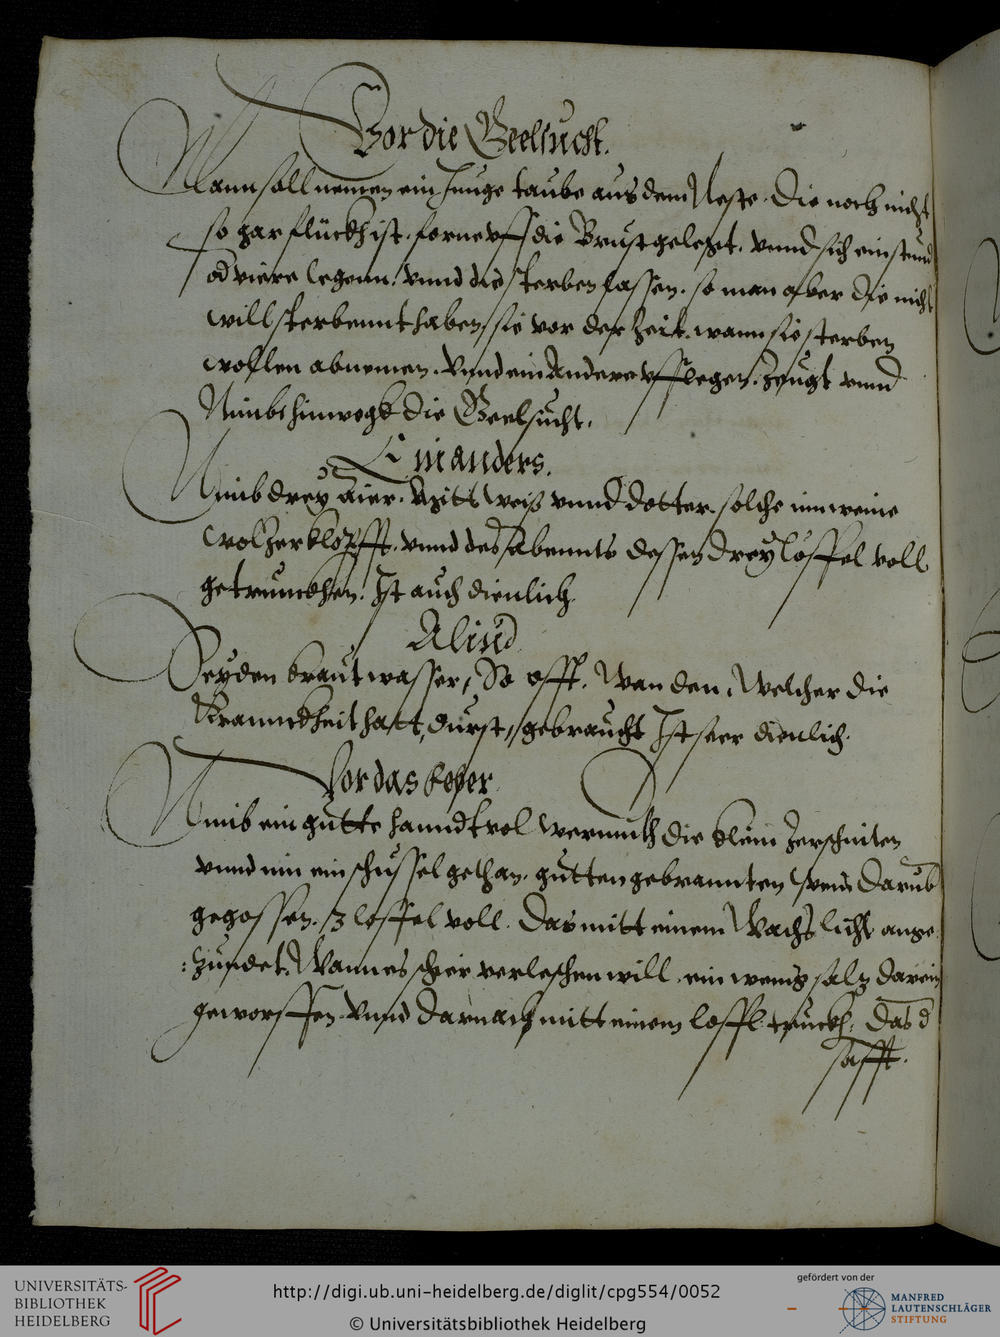 Vor die Geelsucht.
Mann soll nemen ein Junge taube aus dem Neste. Die noch nicht
so gar flückh ist. forne vff die Brust gelegt. vnnd sich ein stund
od viere legenn. vnnd die sterben lassen. so man aber die nicht
will sterbennt haben, sie vor der Zeit. wann sie sterben
wollen abnemen. Vnnd ein Andere vfflegen. Zeugt vnnd
Nimbt hinwegk die Geelsucht.
Ein anders.
Nimb drey Aier. Mitt weiß vnnd dotter. solche inn weine
wol Zerklopfft. vnnd des Abennts dessen drey löffel voll
getrunckhen. Ist auch dienlich.
Aliud
Seyden kraut wasser, So offt. Wan den. Welcher die
Krannckheit hatt, durst, gebraucht Ist seer dienlich.
Vor das keher
Nimb ein gutte hanndtvol wermuth die klein Zerschniten
vnnd inn ein schüssel gethan. gutten gebrannten Wein darub
gegossen. 3 loffel voll. Das mitt einem Wachs licht ange
:zundet. Wann es schier verleschen will. ein wenig saltz darein
geworffen. Vnnd darnach mitt einem loffl. truckh. Das d
safft.
UNIVERSITÄTS-
BIBLIOTHEK
HEIDELBERG
http://digi.ub.uni-heidelberg.de/diglit/cpg554/0052
© Universitätsbibliothek Heidelberg
gefördert von der
MANFRED
LAUTENSCHLÄGER
STIFTUNG